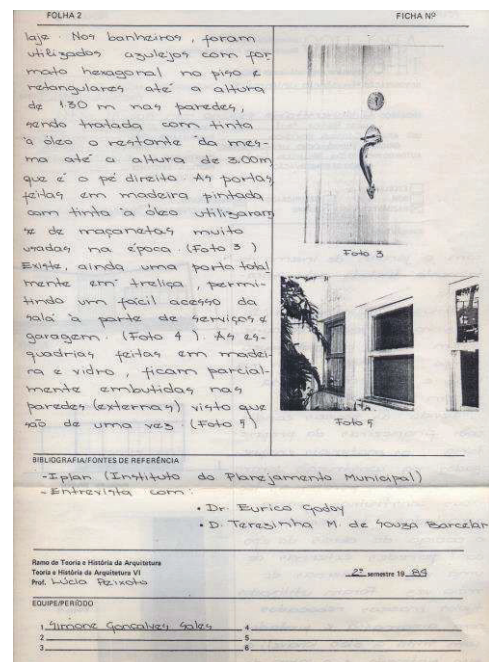 FOLHA 2
FICHA Nº
laje. Nos banheiros, foram
utilizados azulejos com for
mato hexagonal no piso e
retangulares até a altura
de 1.30 m nas paredes,
sendo tratada com tinta
à óleo o restante da mes-
ma até a altura de 3.00m
que é o pé direito. As portas
feitas em madeira pintada
com tinta à óleo utilizaram
se de maçanetas muito
usadas na época. (Foto 3)
Existe, ainda uma porta total
mente em treliça, permi-
tindo um fácil acesso da
sala à parte de serviços e
garagem. (Foto 4). As es-
quadrias feitas em madei
ra e vidro, ficam parcial-
mente embutidas nas
paredes (externas) visto que
são de uma vez (Foto 5)
Foto 3
Foto 5
BIBLIOGRAFIA/FONTES DE REFERÊNCIA
- Iplan (Instituto do Planejamento Municipal)
- Entrevista com:
• Dr. Eurico Godoy
• D. Teresinha M. de Souza Barcelar
Ramo de Teoria e História da Arquitetura
Teoria e História da Arquitetura VI
Prof. Lúcio Peixoto
2º semestre 19 84
EQUIPE/PERÍODO
1 Simone Gonsalves Sales
2
3
4
5
6